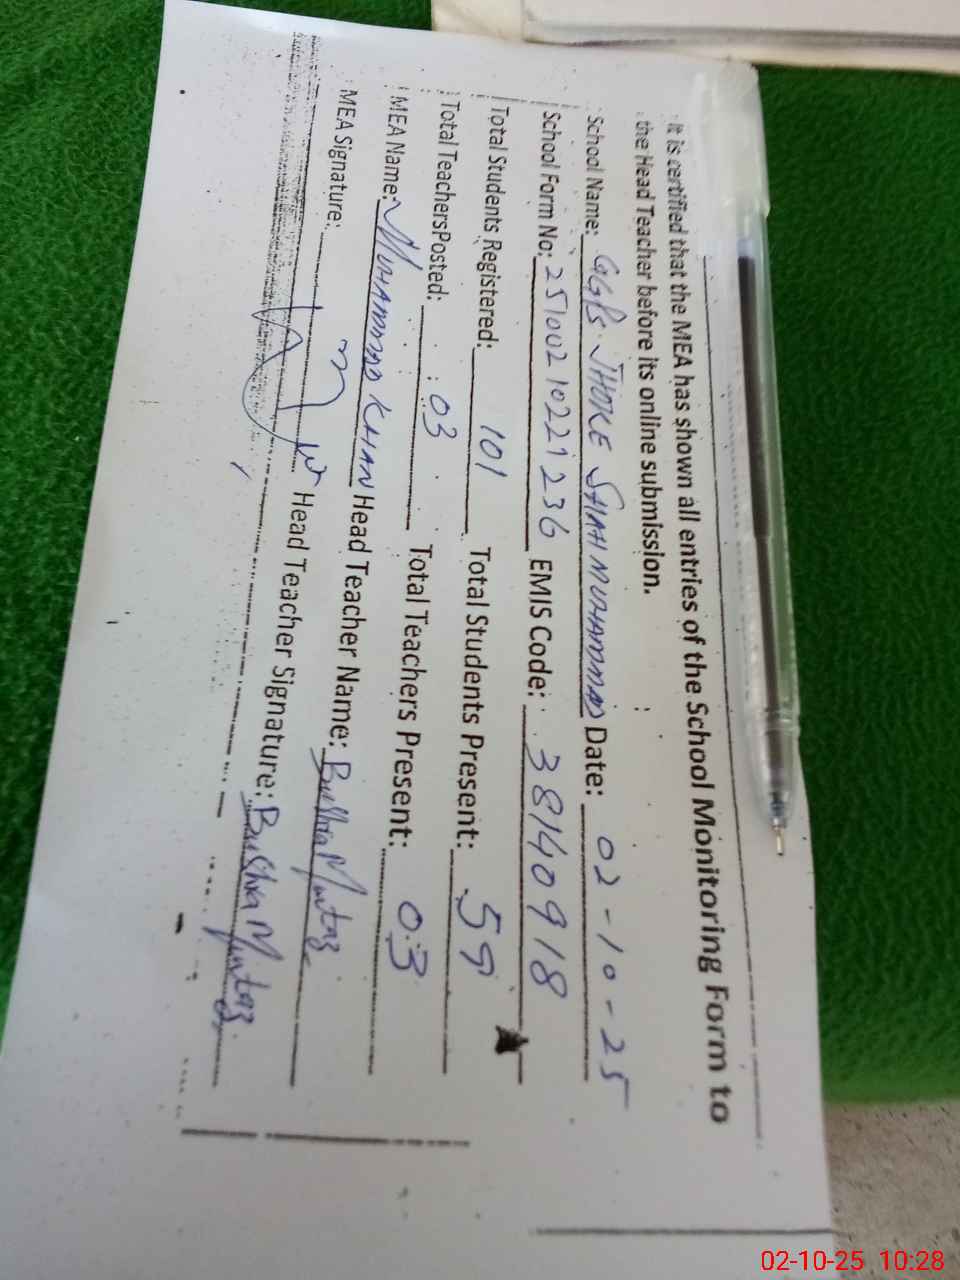 It is certified that the MEA has shown all entries of the School Monitoring Form to
the Head Teacher before its online submission.
School Name: GGPS. JHOKE SHAH MUHAMMAD Date: 02-10-25
School Form No: 25100210221236 EMIS Code: 38140918
Total Students Registered: 101 Total Students Present: 59
Total TeachersPosted: 03 Total Teachers Present: 03
MEA Name: MUHAMMAD KHAN Head Teacher Name: Bushra Mumtaz
MEA Signature: Head Teacher Signature: Bushra Mumtaz
02-10-25 10:28